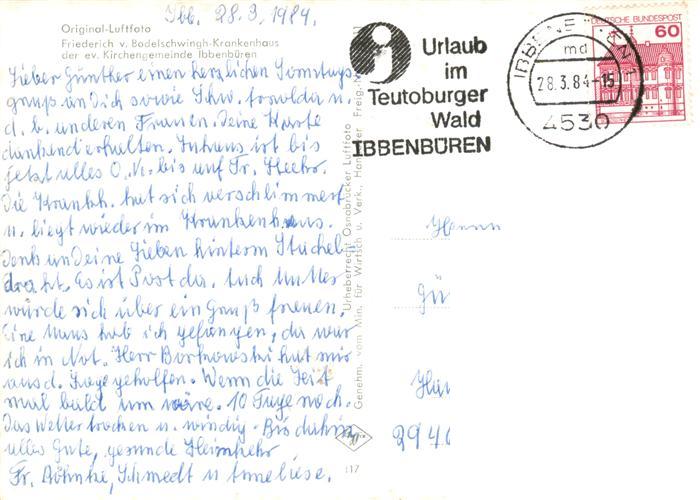 Ibb. 28.3.1984.
Original-Luftfoto
Friederich v. Bodelschwingh-Krankenhaus
der ev. Kirchengemeinde Ibbenbüren
Lieber Günther einen herzlichen Sonntags
gruß an Dich sowie Schw. u.
d. b. anderen Frauen. Deine Karte
dankend erhalten. Zuhaus ist bis
jetzt alles O.K. bis auf Fr.
Die Krankh. hat sich verschlimmert
u. liegt wieder im Krankenhaus.
Denk an Deine Lieben hinterm Stachel-
draht. Es ist Post da. Auch Mutter
würde sich über ein Gruß freuen.
Eine Maus hab ich gefangen, da war
ich in Not. Herr Borkowski hat mir
aus d. Lage geholfen. Wenn die Zeit
mal bald um wäre. 10 Tage noch.
Das Wetter trocken u. windig. Bis dahin
alles Gute, gesunde Heimkehr
Fr. Böhnke, Schmedt u Anneliese.
Urheberrecht Osnabrücker Luftfoto
Genehm. vom Min. für Wirtsch u. Verk., Hannover Freig.-Nr.
117
Urlaub
im
Teutoburger
Wald
IBBENBÜREN
IBBENBÜREN 1
md
28.3.84-15
4530
DEUTSCHE BUNDESPOST
60
Herrn
Gü
Ha
294